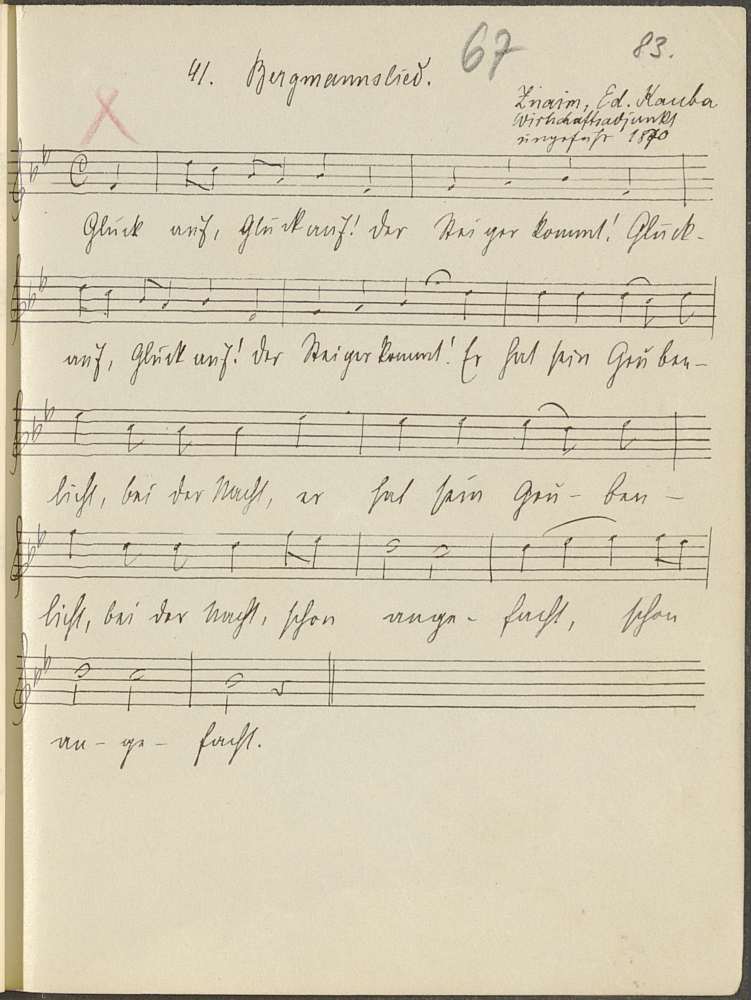 67
83.
41. Bergmannslied.
Znaim, Ed. Kauba
Wirtschaftsadjunkt
ungefähr 1870
Glück auf, Glück auf! der Steiger kommt! Glück-
auf, Glück auf! der Steiger kommt! Er hat sein Gruben-
licht, bei der Nacht, er hat sein Gru-ben-
licht, bei der Nacht, schon ange-facht, schon
an-ge-facht.